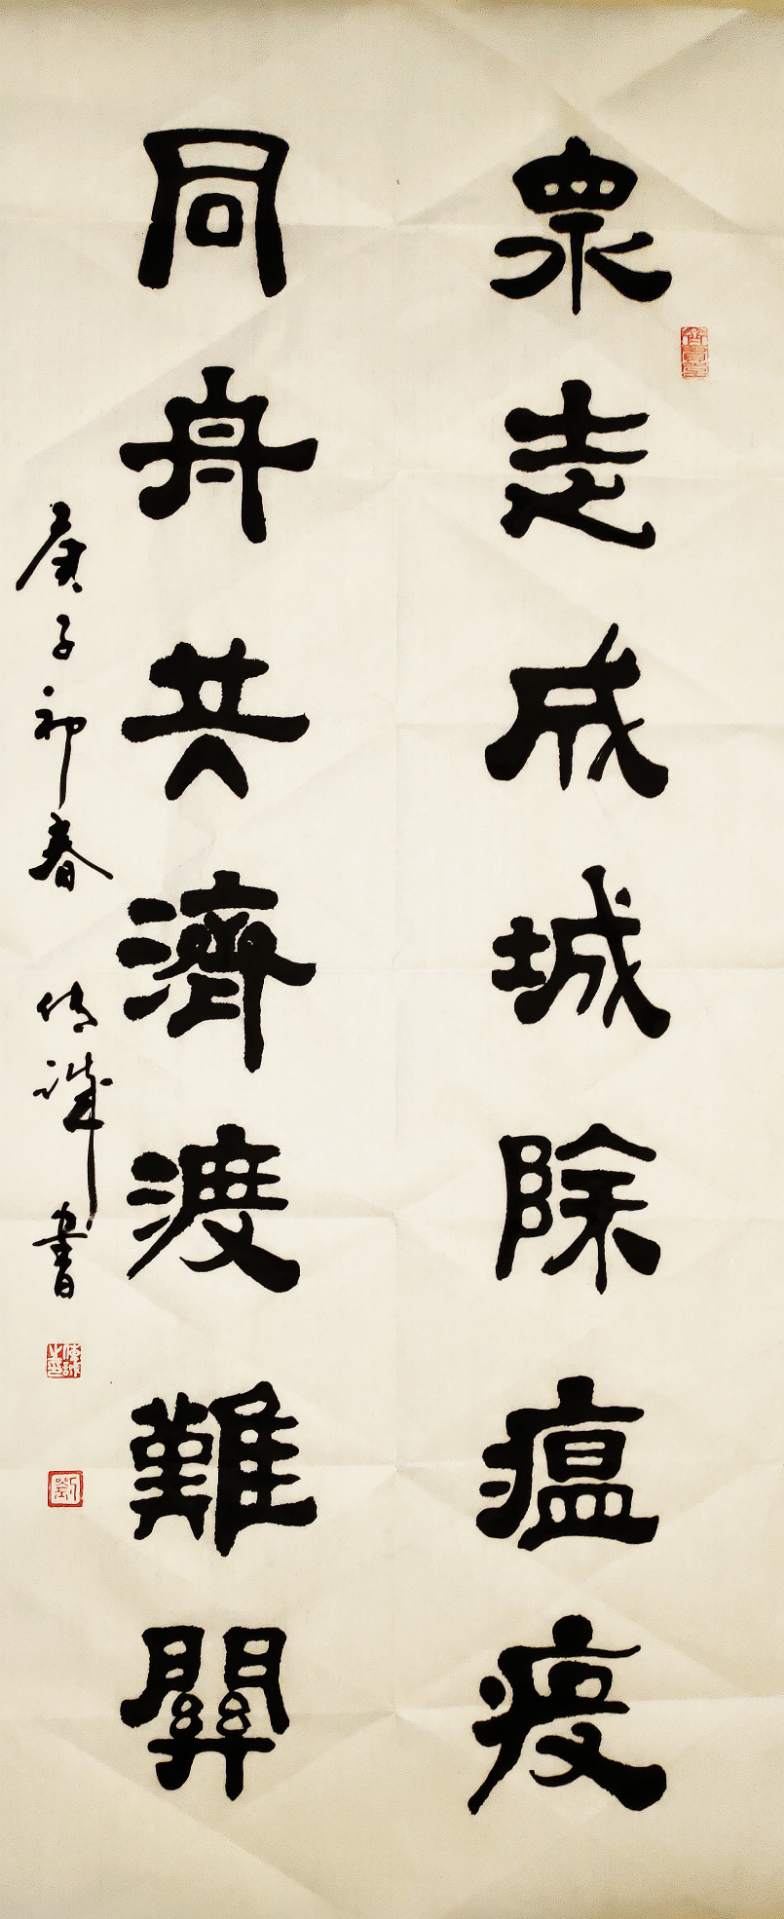 眾志成城除瘟疫
同舟共濟渡難關
庚子初春 傳誠書
劉